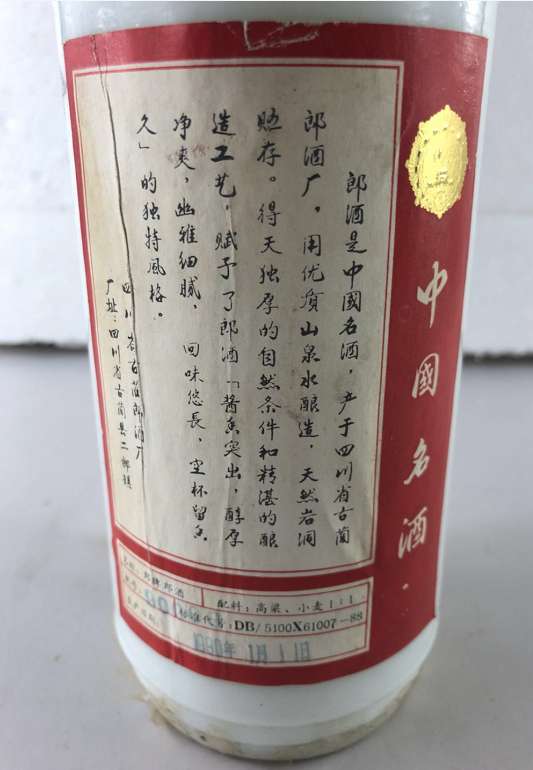 中國名酒
郎酒是中國名酒，产于四川省古蔺
郎酒厂，用优质山泉水酿造，天然岩洞
贮存。得天独厚的自然条件和精湛的酿
造工艺，赋予了郎酒「酱香突出，醇厚
净爽，幽雅细腻，回味悠長，空杯留香
久」的独特風格。
四川省古蔺郎酒厂
厂址：四川省古蔺县二郎镇
郎牌郎酒
配料：高梁、小麦1:1
标准代号：DB/5100X61007-88
1月11日